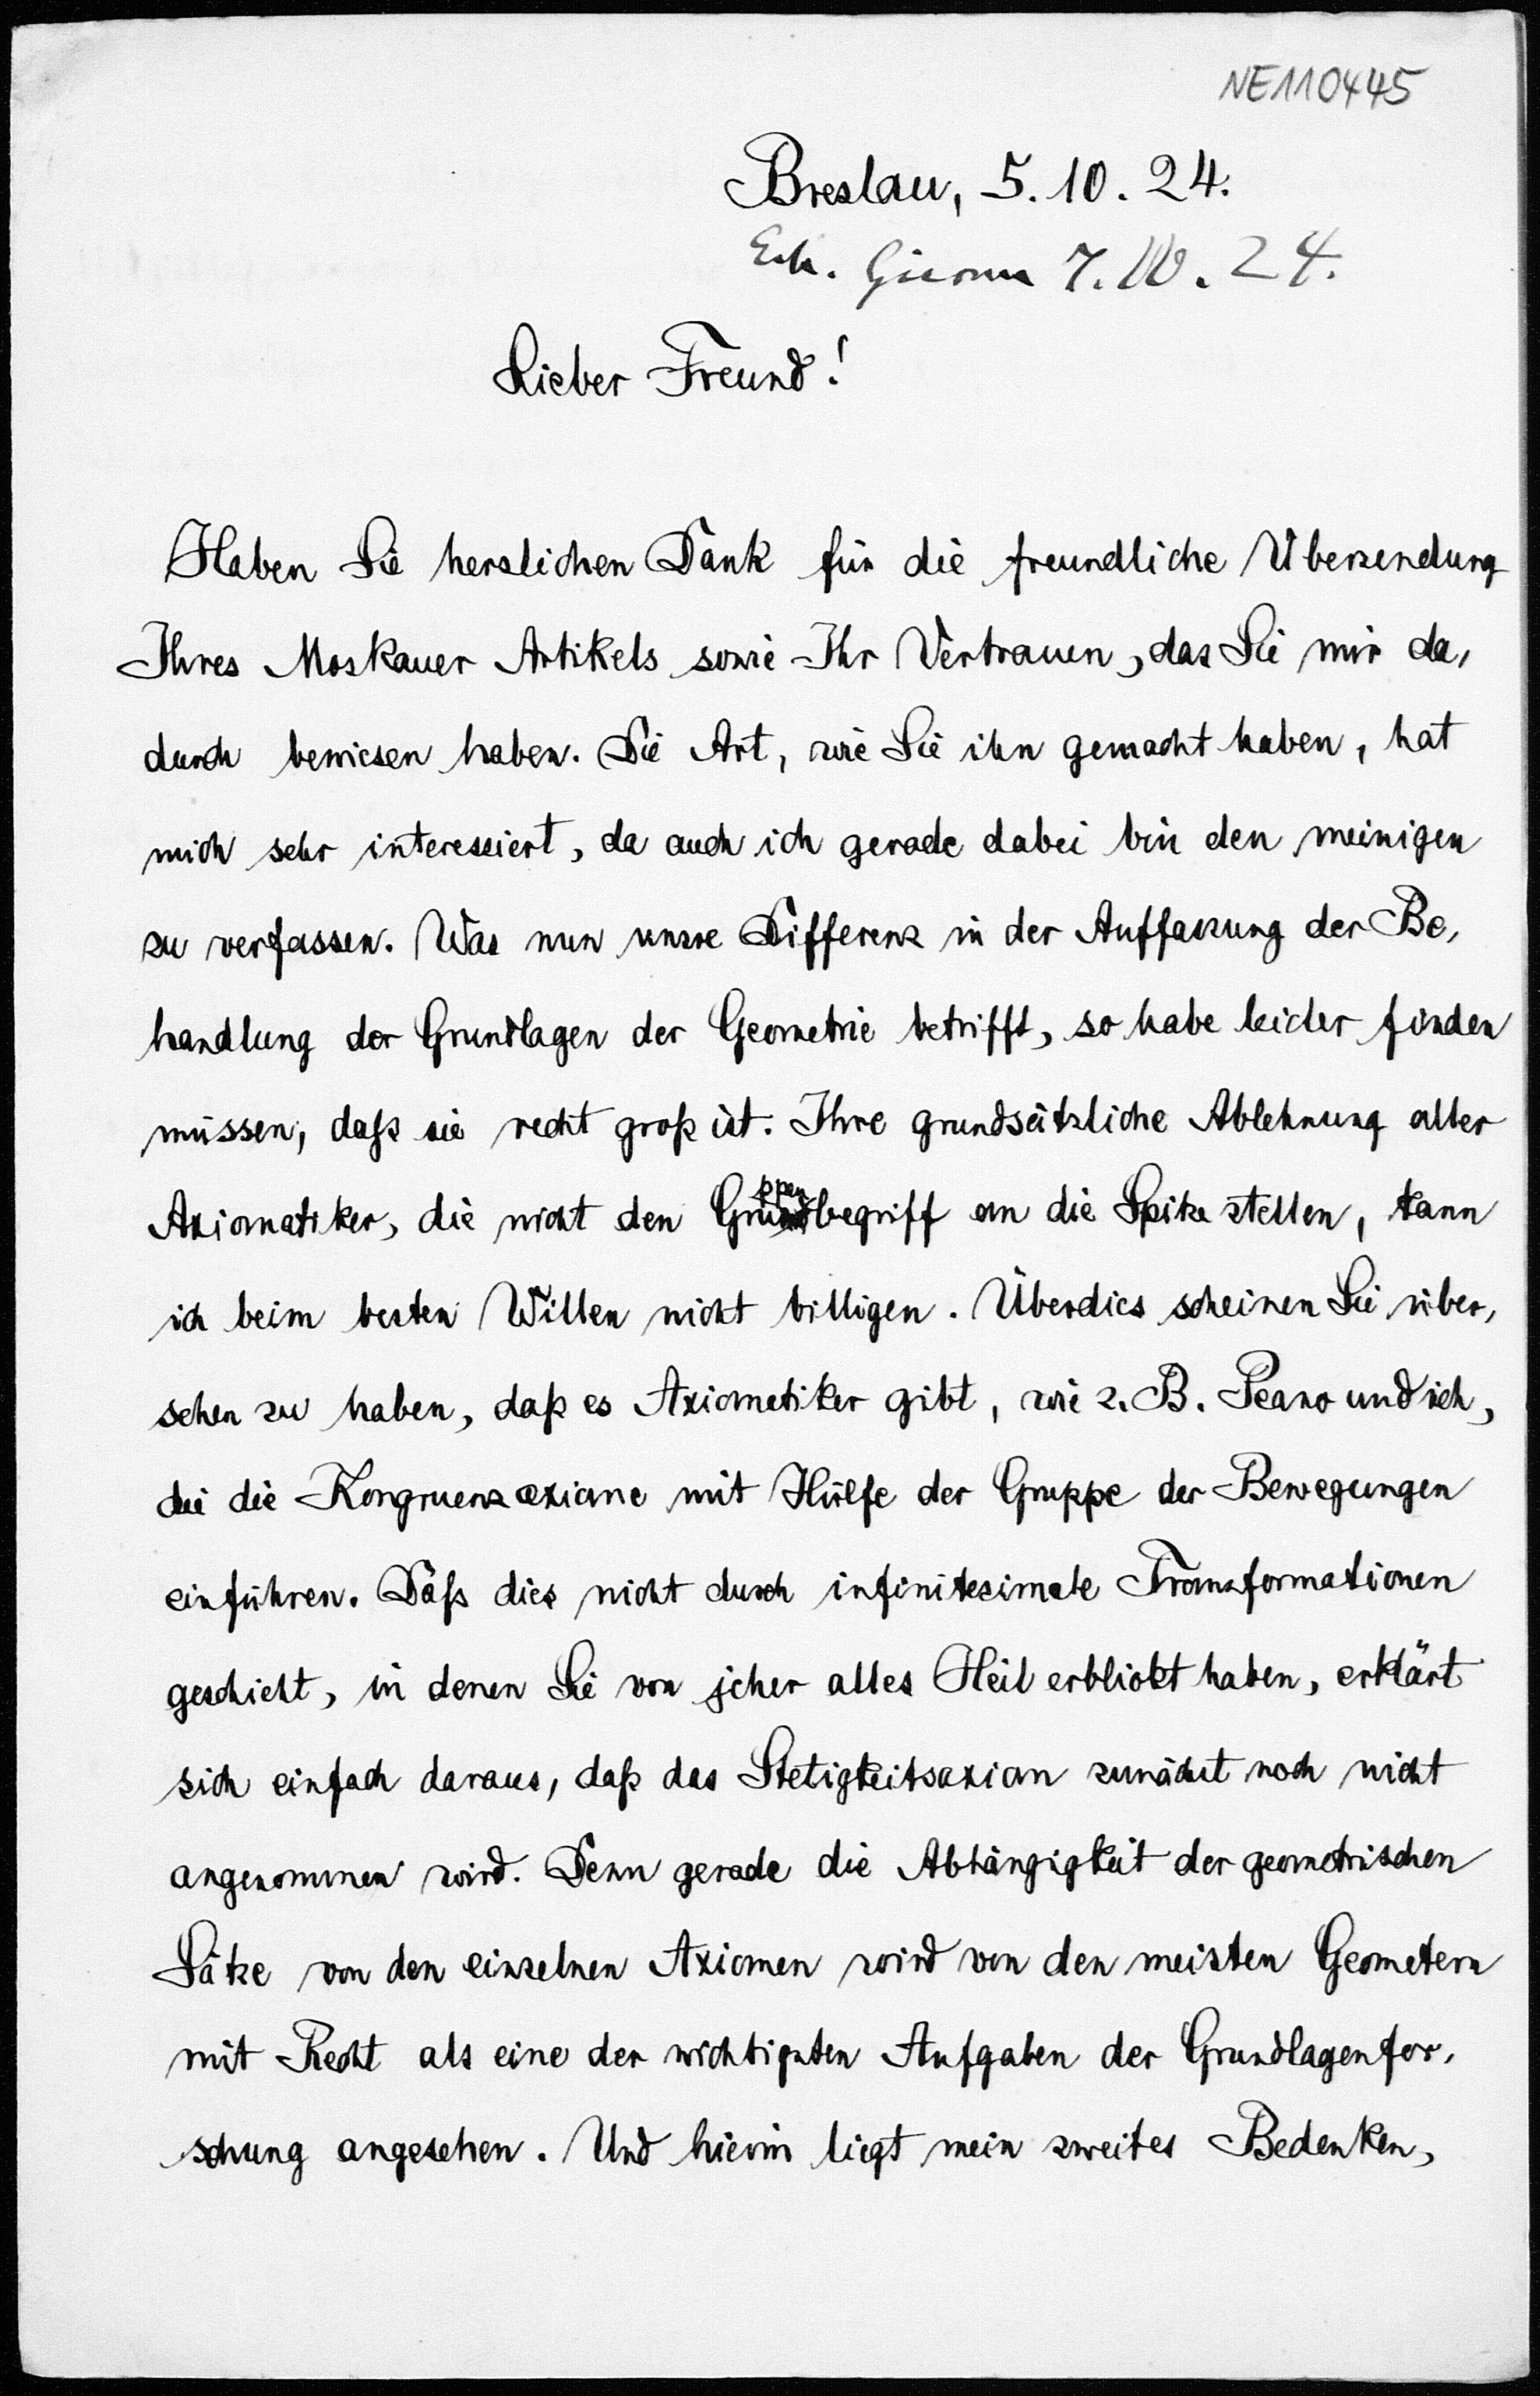 NE110445
Breslau, 5. 10. 24.
Erh. 7. 10. 24.
Lieber Freund!
Haben Sie herzlichen Dank für die freundliche Übersendung
Ihres Moskauer Artikels sowie Ihr Vertrauen, das Sie mir da,
durch bewiesen haben. Die Art, wie Sie ihn gemacht haben, hat
mich sehr interessiert, da auch ich gerade dabei bin den meinigen
zu verfassen. Was nun unsre Differenz in der Auffassung der Be,
handlung der Grundlagen der Geometrie betrifft, so habe leider finden
müssen, daß sie recht groß ist. Ihre grundsätzliche Ablehnung aller
Axiomatiker, die nicht den Gruppenbegriff an die Spitze stellen, kann
ich beim besten Willen nicht billigen. Überdies scheinen Sie über,
sehen zu haben, daß es Axiomatiker gibt, wie z. B. Peano und ich,
die die Kongruenzaxiome mit Hülfe der Gruppe der Bewegungen
einführen. Daß dies nicht durch infinitesimale Transformationen
geschieht, in denen Sie von jeher alles Heil erblickt haben, erklärt
sich einfach daraus, daß das Stetigkeitsaxiom zunächst noch nicht
angenommen wird. Denn gerade die Abhängigkeit der geometrischen
Sätze von den einzelnen Axiomen wird von den meisten Geometern
mit Recht als eine der wichtigsten Aufgaben der Grundlagenfor,
schung angesehen. Und hierin liegt mein zweites Bedenken,